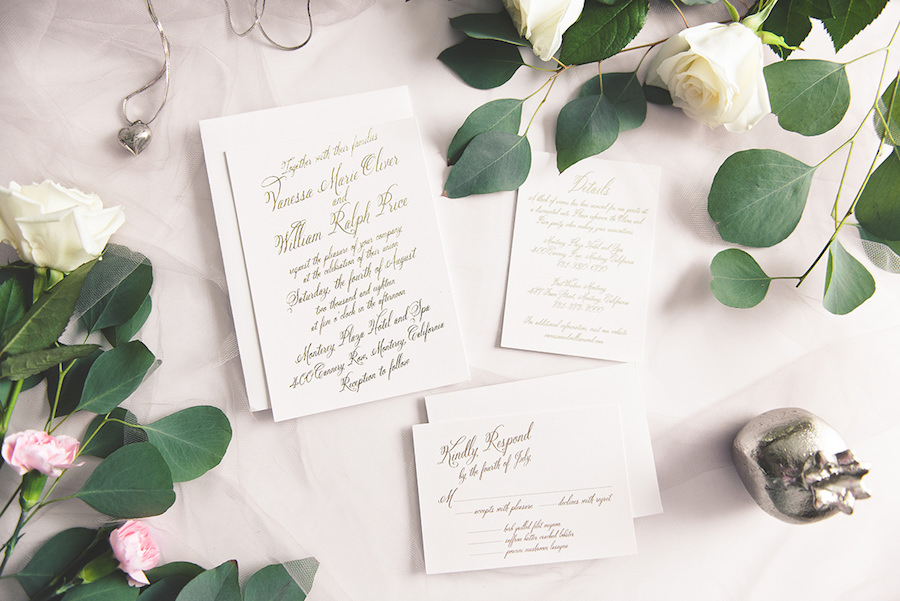 Together with their families
Vanessa Marie Oliver
and
William Ralph Price
request the pleasure of your company
at the celebration of their union
Saturday, the fourth of August
two thousand and eighteen
at five o'clock in the afternoon
Monterey Plaza Hotel and Spa
400 Cannery Row, Monterey, California
Reception to follow
Details
A block of rooms has been reserved for our guests at
a discounted rate. Please reference the Oliver and
Price party when making your reservations.
Monterey Plaza Hotel and Spa
400 Cannery Row, Monterey, California
Monterey, California
For additional information, visit our website
Kindly Respond
by the fourth of July,
M
accepts with pleasure declines with regret
herb grilled filet mignon
saffron butter poached lobster
porcini mushroom lasagna